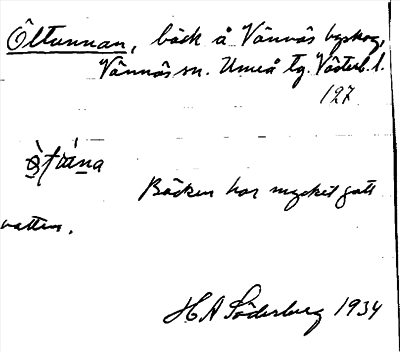 Öltunnan, bäck å Vännäs byskog,
Vännäs sn. Umeå tg. Västerb. l.
127.
Bäcken har mycket gott
vatten.
H A Söderberg 1934